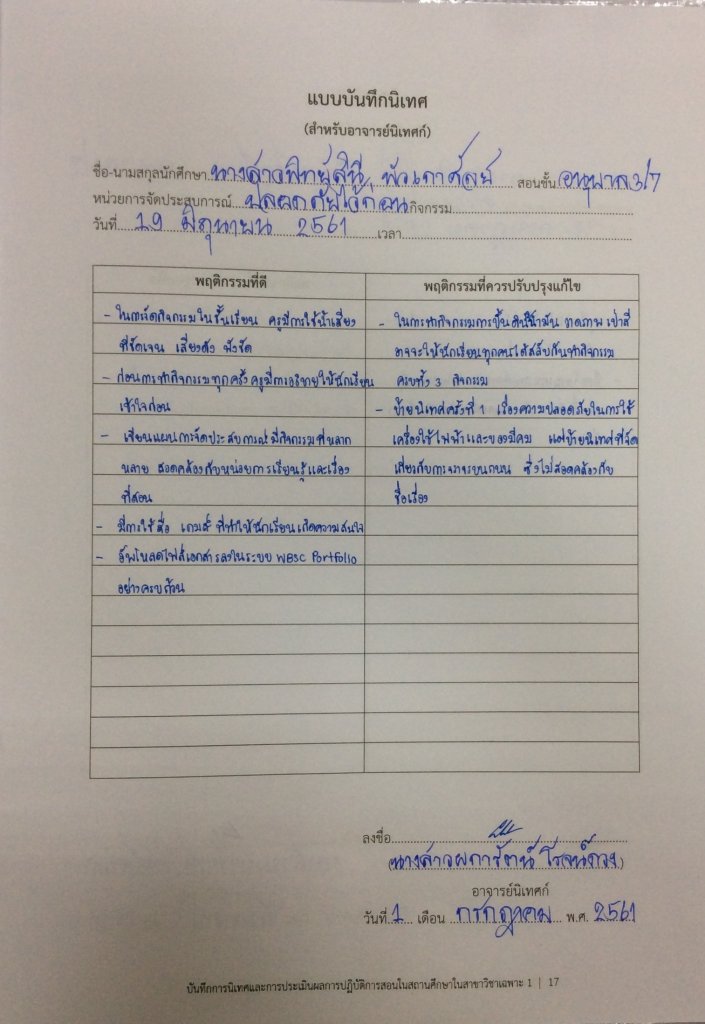 แบบบันทึกนิเทศ
(สำหรับอาจารย์นิเทศก์)
ชื่อ-นามสกุลนักศึกษา นางสาวพิทย์สินี พัวเกาศัลย์ สอนชั้น อนุบาล3/7
หน่วยการจัดประสบการณ์ ปลอดภัยไว้ก่อน กิจกรรม
วันที่ 19 มิถุนายน 2561 เวลา
พฤติกรรมที่ดี
- ในการจัดกิจกรรมในชั้นเรียน ครูมีการใช้น้ำเสียง
ที่ชัดเจน เสียงดัง ฟังชัด
- ก่อนการทำกิจกรรมทุกครั้งครูมีการอธิบายให้นักเรียน
เข้าใจก่อน
- เขียนแผนการจัดประสบการณ์ มีกิจกรรมที่หลาก
หลาย สอดคล้องกับหน่วยการเรียนรู้และเรื่อง
ที่สอน
- มีการใช้สื่อ เกมส์ ที่ทำให้นักเรียนเกิดความสนใจ
- อัพโหลดไฟล์เอกสารลงในระบบ WBSC Portfolio
อย่างครบถ้วน
พฤติกรรมที่ควรปรับปรุงแก้ไข
- ในการทำกิจกรรมการปั้นดินน้ำมัน วาดภาพ เป่าสี
อาจจะให้นักเรียนทุกคนได้สลับกันทำกิจกรรม
ครบทั้ง 3 กิจกรรม
- ป้ายนิเทศครั้งที่ 1 เรื่องความปลอดภัยในการใช้
เครื่องใช้ไฟฟ้าและของมีคม แต่ป้ายนิเทศที่จัด
เกี่ยวกับการจราจรบนถนน ซึ่งไม่สอดคล้องกับ
ชื่อเรื่อง
ลงชื่อ
(นางสาวผการัตน์ โรจน์ดวง)
อาจารย์นิเทศก์
วันที่ 1 เดือน กรกฎาคม พ.ศ. 2561
บันทึกการนิเทศและการประเมินผลการปฏิบัติการสอนในสถานศึกษาในสาขาวิชาเฉพาะ 1 | 17